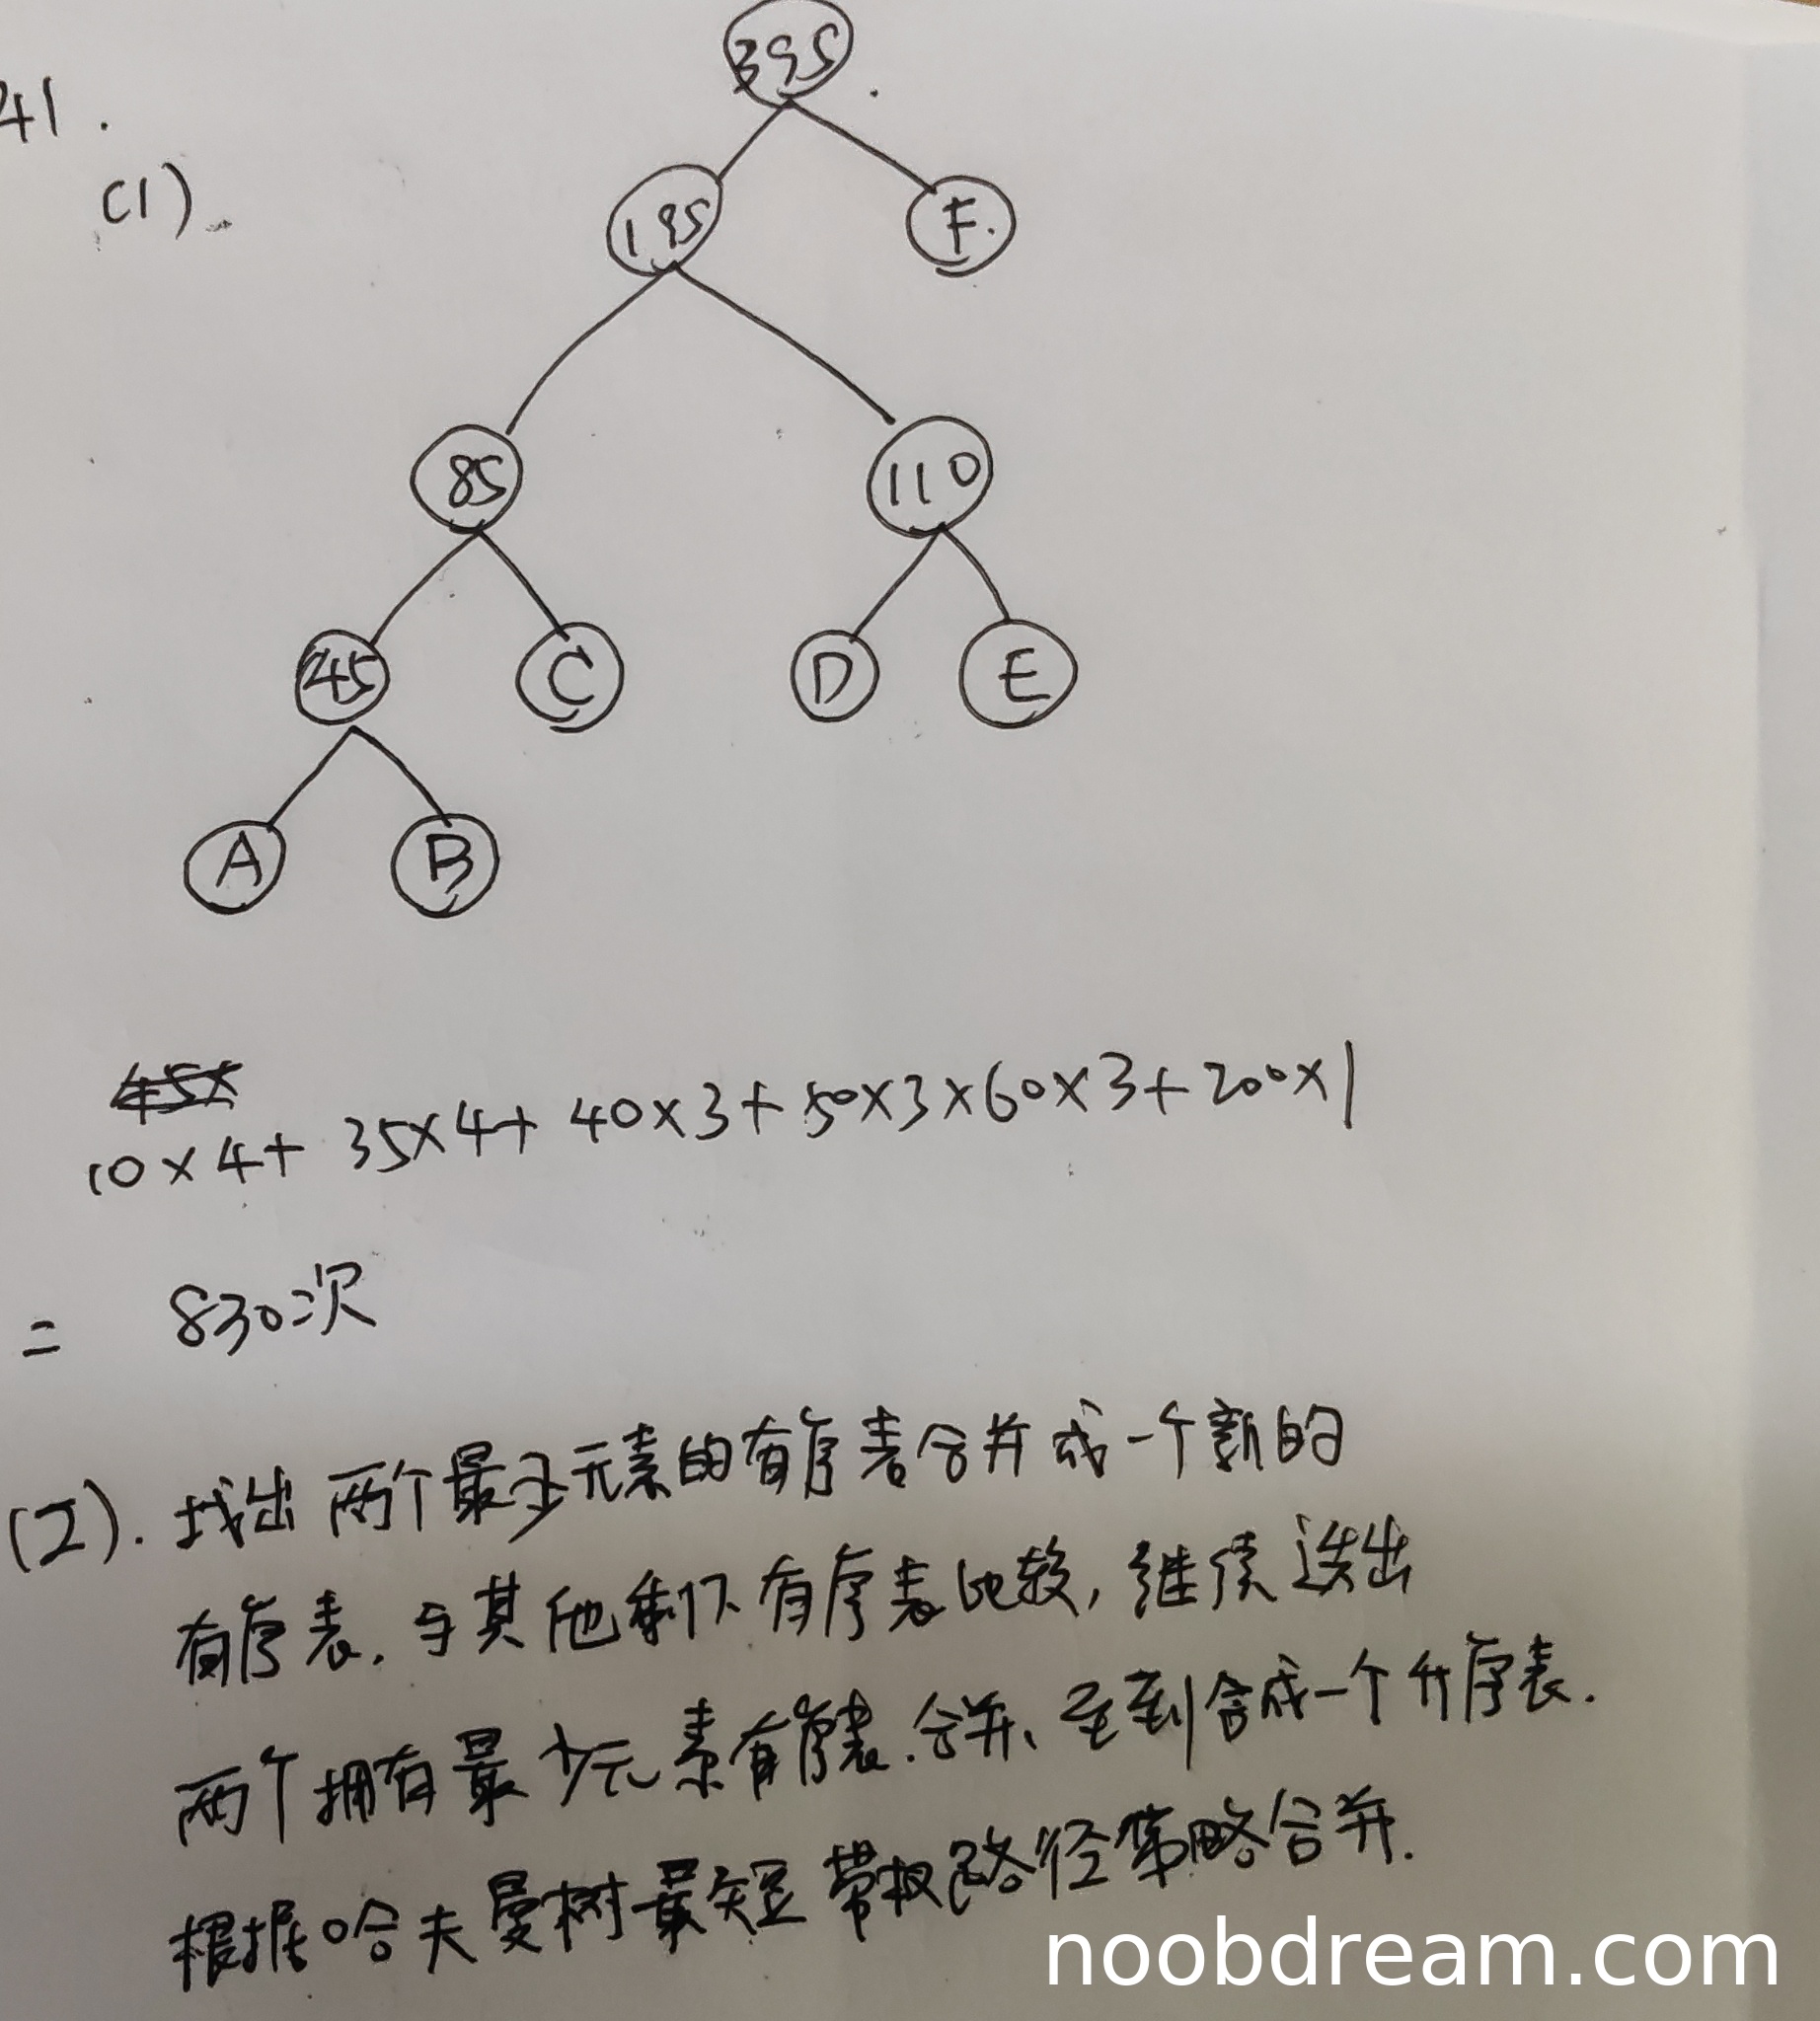 41.
(1)
395
195
F.
85
110
45
C
D
E
A
B
10×4+ 35×4+ 40×3+ 50×3×60×3+200×1
= 830次
(2). 找出两个最少元素的有序表合并成一个新的
有序表.与其他剩下有序表比较,继续选出
两个拥有最少元素有序表.合并、至到合成一个升序表.
根据哈夫曼树最短带权路径策略合并.
noobdream.com